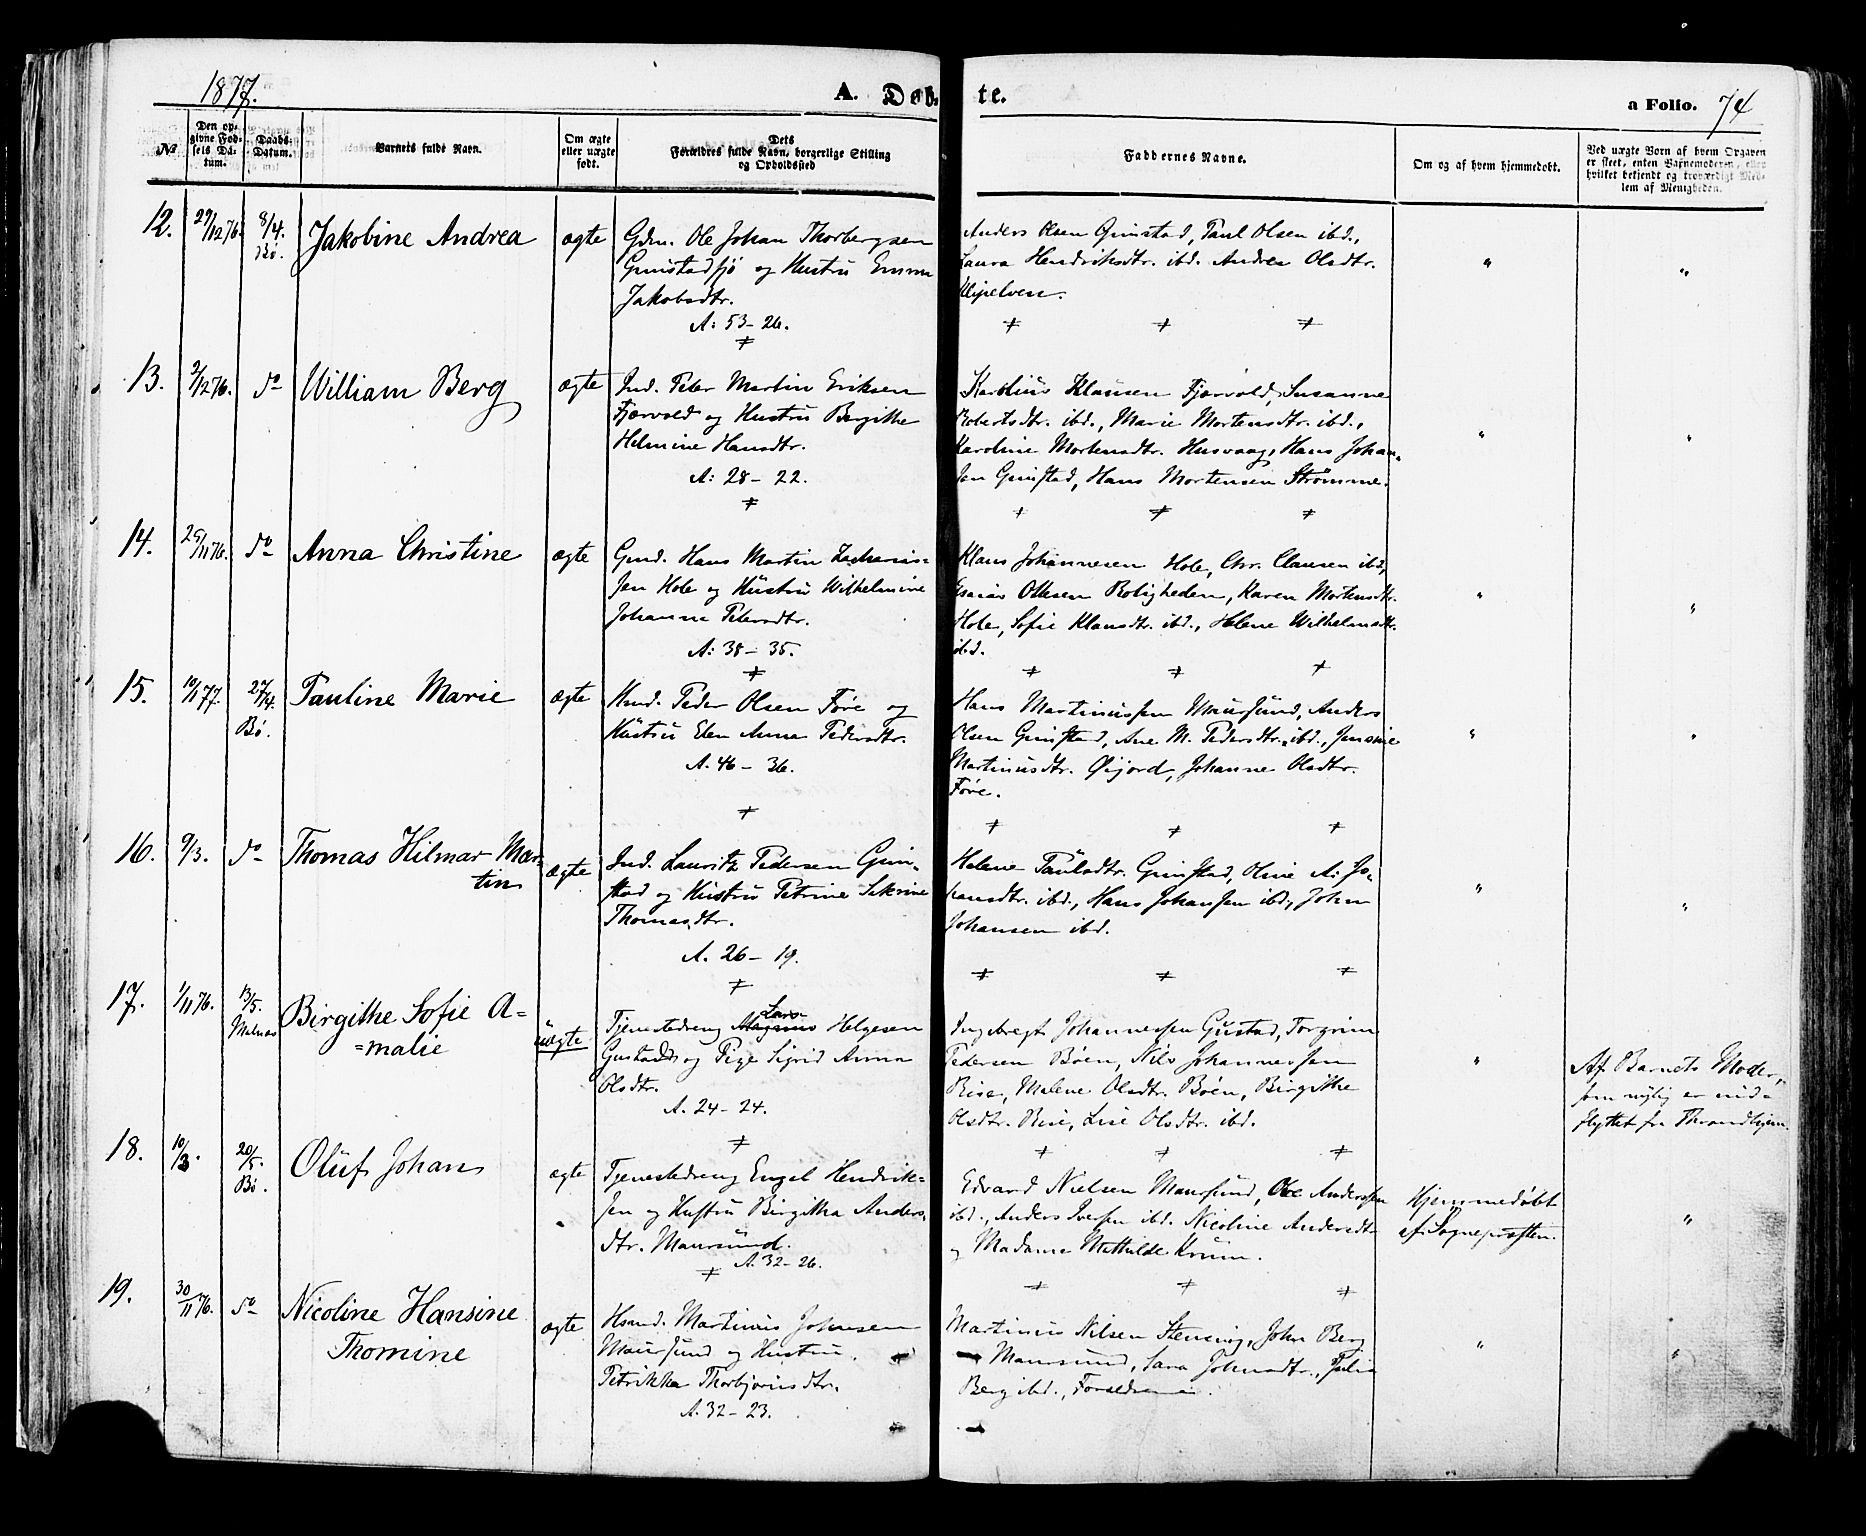 1877.
A. Døb-
te.
a Folio. 74
No
Den opgivne Fødsels Datum.
Daabs-Datum.
Barnets fulde Navn.
Om ægte eller uægte født.
Dets Forældres fulde Navn, borgerlige Stilling og Opholdssted
Faddernes Navne.
Om og af hvem hjemmedøbt.
Ved uægte Børn af hvem Opgaven er skeet, enten Barnemoderen, eller hvilket bekjendt og troværdigt Medlem af Menigheden.
12.
29/12 76.
8/4. Bø.
Jakobine Andrea
ægte
Gdm. Ole Johan Thorbergsen
Grimstadfjö og Hustru Emma
Jakobsdtr.
A: 53-26.
Anders Olsen Grimstad, Paul Olsen ibd.,
Laura Hendriksdtr. ibd. Andrea Olsdtr.
"
"
13.
2/12 76.
do
William Berg
ægte
Ind. Peter Martin Eriksen
Fjærvold og Hustru Bergithe
Helmine Hansdtr.
A: 28-22.
Karolius Klausen Fjærvold, Susanne
Robertsdtr. ibd., Marie Mortensdtr. ibd.,
Karoline Mortensdtr. Husvaag, Hans Johan-
sen Grimstad, Hans Mortensen Strömme.
"
"
14.
25/11 76.
do
Anna Christine
ægte
Gmd. Hans Martin Zacharias-
sen Hole og Hustru Wilhelmine
Johanna Petersdtr.
A: 38-35.
Klaus Johannesen Hole, Chr. Clausen ibd,
Esaias Olsen Roligheden, Karen Mortensdtr.
Hole, Sofie Klausdtr. ibd., Helene Wilhelmsdtr.
ibd.
"
"
15.
10/1 77.
27/4. Bø.
Pauline Marie
ægte
Hmd. Peder Olsen Føre og
Hustru Elen Anna Pedersdtr.
A. 46-36.
Hans Martinussen Maursund, Anders
Olsen Grimstad, Ane M. Pedersdtr. ibd., Jensine
Martinusdtr. Øijord, Johanne Olsdtr.
Føre.
"
"
16.
9/3.
do
Thomas Hilmar Mar-
tin
ægte
Ind. Lauritz Pedersen Grim-
stad og Hustru Petrine Sekrine
Thomasdtr.
A. 26-19.
Helene Paulsdtr. Grimstad, Oline A. Jo-
hansdtr. ibd., Hans Johansen ibd, John
Johansen ibd.
"
"
17.
1/11 76.
13/5. Melnæs
Birgithe Sofie A=
=malie
uægte
Tjenestedreng Lars Helgesen
Gustad og Pige Sigrid Anna
Olsdtr.
A. 24-24.
Ingebregt Johannessen Gustad, Torgrim
Pedersen Bøen, Nils Johannessen
Rise, Malene Olsdtr. Bøen, Birgithe
Olsdtr. Rise, Lise Olsdtr. ibd.
"
Af Barnets Moder,
som nylig er ind-
flyttet fra Throndhjem.
18.
10/3.
20/5. Bø.
Oluf Johan
ægte
Tjenestedreng Engel Hendrik-
sen og Hustru Birgitha Anders-
dtr. Maursund.
A. 32-26.
Edvard Nielsen Maursund, Ole Anderssen
ibd., Anders Iversen ibd. Nicoline Andersdtr
og Madame Mathilde Krum.
Hjemmedøbt
af Sognepræsten.
"
19.
30/11 76.
do
Nicoline Hansine
Thomine
ægte
Hsmd. Martinus Johnsen
Maursund og Hustru
Petrikka Thorbjørnsdtr.
A. 32-23.
Martinus Nilsen Stensvig, John Berg
Maursund, Sara Johnsdtr., Julie
Berg ibd., Forældrene.
"
"